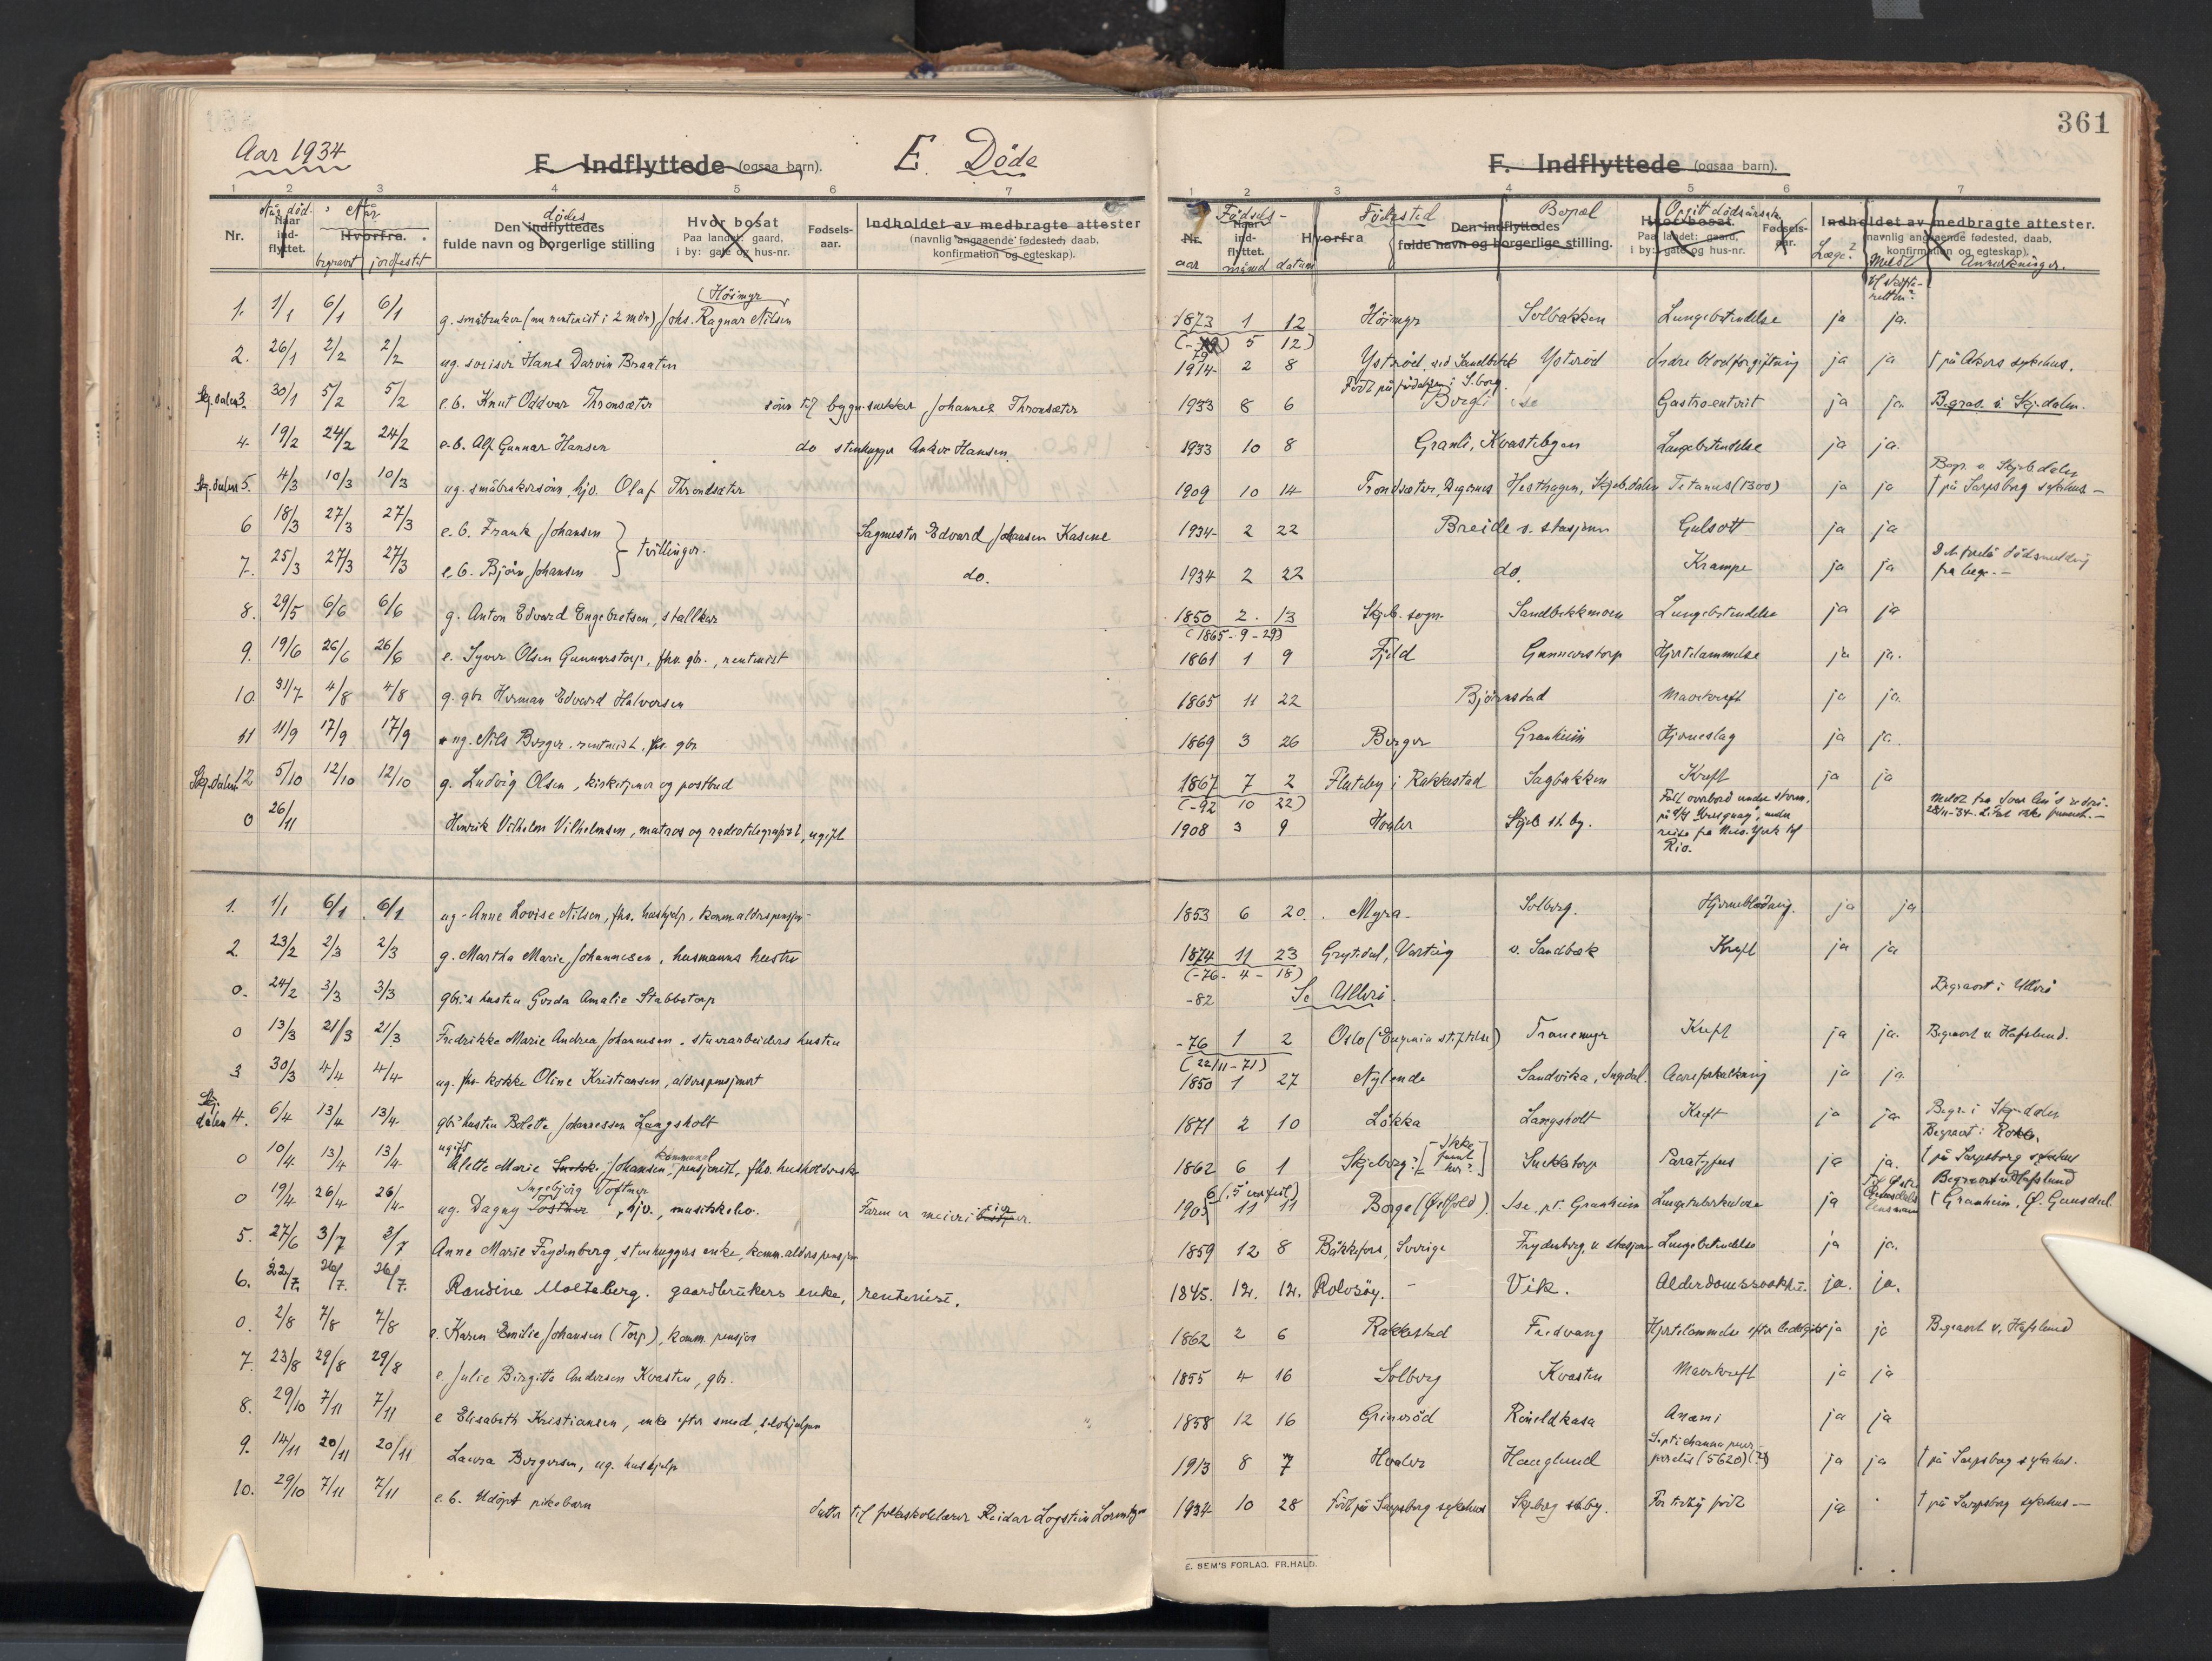 361
Aar 1934
F. Indflyttede (ogsaa barn). E. Döde
F. Indflyttede (ogsaa barn).
1 2 3 4 5 6 7
1 2 3 4 5 6 7
Nr. Naar ind-flyttet. Hvorfra. Den indflyttedes fulde navn og borgerlige stilling Hvor bosat Paa landet: gaard, i by: gate og hus-nr. Fødsels-aar. Indholdet av medbragte attester (navnlig angaaende fødested, daab, konfirmation og egteskap).
Når død. Når begravet jordfestet dödes
Nr. Naar ind-flyttet. Hvorfra Den indflyttedes fulde navn og borgerlige stilling. Hvor bosat. Paa landet: gaard, i by: gate og hus-nr. Fødsels-aar. Indholdet av medbragte attester. (navnlig angaaende fødested, daab, konfirmation og egteskap).
Födsels- aar månd datum Födested Bopæl Opgitt dödsårsak Læge? Meldt til skifte-retten? Anmerkninger.
1. 1/1 6/1 6/1 g. småbruker (nu rentenist i 2 mdr) Johs. Ragnar Nilsen (Höimyr) 1873 1 12 Höimyr Solbakken Lungebetendelse ja ja.
(-79 5 12)
2. 26/1 2/2 2/2 ug. Hans Darvin Braaten 1914 2 8 Ysteröd, ved Sandbekk Ysteröd Indre blodforgiftning ja ja † på Akers sykehus.
Skj.dalen 3. 30/1 5/2 5/2 e.b. Knut Oddvar Thronsæter sönn til bygn.snekker Johannes Thronsæter 1933 8 6 Födt på födehjem i S.borg. Borgli Gastroenterit ja ja. Begrav. i Skj.dalen.
4. 19/2 24/2 24/2 e.b. Alf Gunnar Hansen do stenhugger Anker Hansen. 1933 10 8 Granli, Kvastebyen Lungebetendelse ja ja.
Skj.dalen 5. 4/3 10/3 10/3 ug. småbrukersönn, hjv. Olaf Throndsæter 1909 10 14 Trondsæter, Degernes Hesthagen, Skjeb.dalen Tetanus (1300) ja ja Begr. i Skjebdalen † på Sarpsborg sykehus -
6 18/3 27/3 27/3 e.b. Frank Johansen } tvillinger. Sagmester Edvard Johansen Kasene 1934 2 22 Breide v. stasjonen Gulsott ja ja
7. 25/3 27/3 27/3 e.b. Björn Johansen do. 1934 2 22 do. Krampe ja ja dödsmelding fra læge. -
8. 29/5 6/6 6/6 g. Anton Edvard Engebretsen, stallkar 1850 2 13 Skjeb. sogn. Sandbekkmoen Lungebetendelse ja ja
(1865 - 9 - 29)
9. 19/6 26/6 26/6 e. Syver Olsen Gunnarstorp, fhv. gbr., rentenist 1861 1 9 Fjeld Gunnarstorp Hjertelammelse ja ja.
10. 31/7 4/8 4/8 g. gbr Herman Edvard Halvorsen 1865 11 22 Bjørnstad Mavekreft ja ja.
11 11/9 17/9 17/9 ug. Nils Berger, rentenist, fhv. gbr 1869 3 26 Berger Granheim Hjerneslag ja ja.
Skj.dalen 12 5/10 12/10 12/10 g. Ludvig Olsen, kirketjener og postbud 1867 7 2 Flateby i Rakkestad Sagbakken Kreft ja ja
(-92 10 22)
0 26/11 Henrik Vilhelm Vilhelmsen, matros og radiotelegrafist, ugift 1908 3 9 Hvaler Skjeb. st. by. Falt overbord under storm, på under reise fra New York til Rio. Meldt fra 28/11-34. Liket ikke funnet. -
1. 1/1 6/1 6/1 ug. Anne Lovise Nilsen, fhv. hushjelp, komm alderspensjon 1853 6 20. Myra - Solberg. Hjerneblödning. ja ja
2. 23/2 2/3 2/3 g. Martha Marie Johannesen, husmanns hustru 1874 11 23 Grytedal, Varteig v. Sandbæk Kreft ja ja
(-76 - 4 - 18)
0. 24/2 3/3 3/3 gbr's hustru Gerda Amalie Stabbetorp -82 Se Ullerö. Begravet i Ullerö
0 13/3 21/3 21/3 Fredrikke Marie Andrea Johannesen. stuerarbeiders hustru -76 1 2 Oslo (Eugenia stiftelse) Tranemyr Kreft ja ja. Begravet v. Hafslund.
(22/11-71)
3 30/3 4/4 4/4 ug. fhv kokke Oline Kristiansen, alderspensjonist 1850 1 27 Nylende Sandvika, Ingedal. Aareforkalkning ja ja.
Skj.dalen 4. 6/4 13/4 13/4 gbr's hustru Bolette Johannessen Langsholt 1871 2 10 Løkka Langsholt Kreft ja ja. Begr. i Skj.dalen
0 10/4 13/4 13/4 ugift Alette Marie Johansen, kommunal pensjonist, fhv. husholderske 1862 6 1 Skjeberg? [Ikke funnet her?] Snekketorp Paratyfus ja ja. Begravet i Rokke, † på Sarpsborg sykehus
0 19/4 26/4 26/4 ug. Dagny Ingebjörg Toftner, hjv., musikkelev. Faren er meieri eier. 1905 11 11 Borge (Østfold). Ise. pt. Granheim Lungetuberkulose ja Begravet v. Hafslund † Granheim, Ø. Gausdal
5. 27/6 3/7 3/7 Anne Marie Frydenberg, stenhuggers enke, komm. alderspensjon 1859 12 8 Bäkkefors, Sverige Frydenberg, v. stasjon Lungebetendelse ja ja.
6. 22/7. 26/7. 26/7. Randine Molteberg. gaardbrukers enke, rentenist. 1845. 12. 12. Rolvsöy. - Vik. Alderdomssvakhet. ja. ja.
0. 2/8 7/8 7/8 e. Karen Emilie Johansen (Torp), komm. pensjon 1862 2 6 Rakkestad Fredvang Hjertelammelse efter ja ja Begravet v. Hafslund
7. 23/8 29/8 29/8 e. Julie Birgitte Andersen Kvasten, gbr. 1855 4 16 Solberg Kvasten Mavekreft ja ja
8. 29/10 7/11 7/11 e Elisabeth Kristiansen, enke efter smed, selvhjulpen 1858 12 16 Grimsöd Röneldkasa Anæmi ja ja
9. 14/11 20/11 20/11 Laura Borgersen, ug. hushjelp 1913 8 7 Hvaler Hauglund (5620) ja ja † på Sarpsborg sykehus.
10. 29/10 7/11 7/11 e.b. Udöpt pikebarn datter til folkeskolelærer Reidar Logstein Lorentzen 1934 10 28 Födt på Sarpsborg sykehus Skjeberg st.by. For tidlig födt ja † på Sarpsborg sykehus -
E. SEM'S FORLAG. FR.HALD.